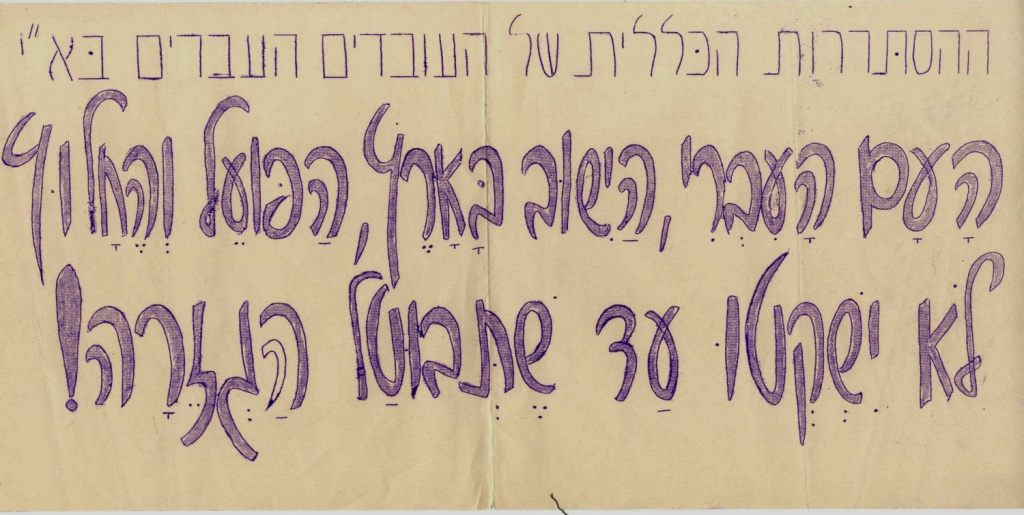 ההסתדרות הכללית של העובדים העברים בא"י
הָעָם הָעִבְרִי, הַישּׁוּב בָּאָרֶץ, הַפּוֹעֵל וְהֶחָלוּץ
לֹא יִשְׁקְטוּ עַד שֶׁתְּבוּטַל הַגְּזֵרָה!